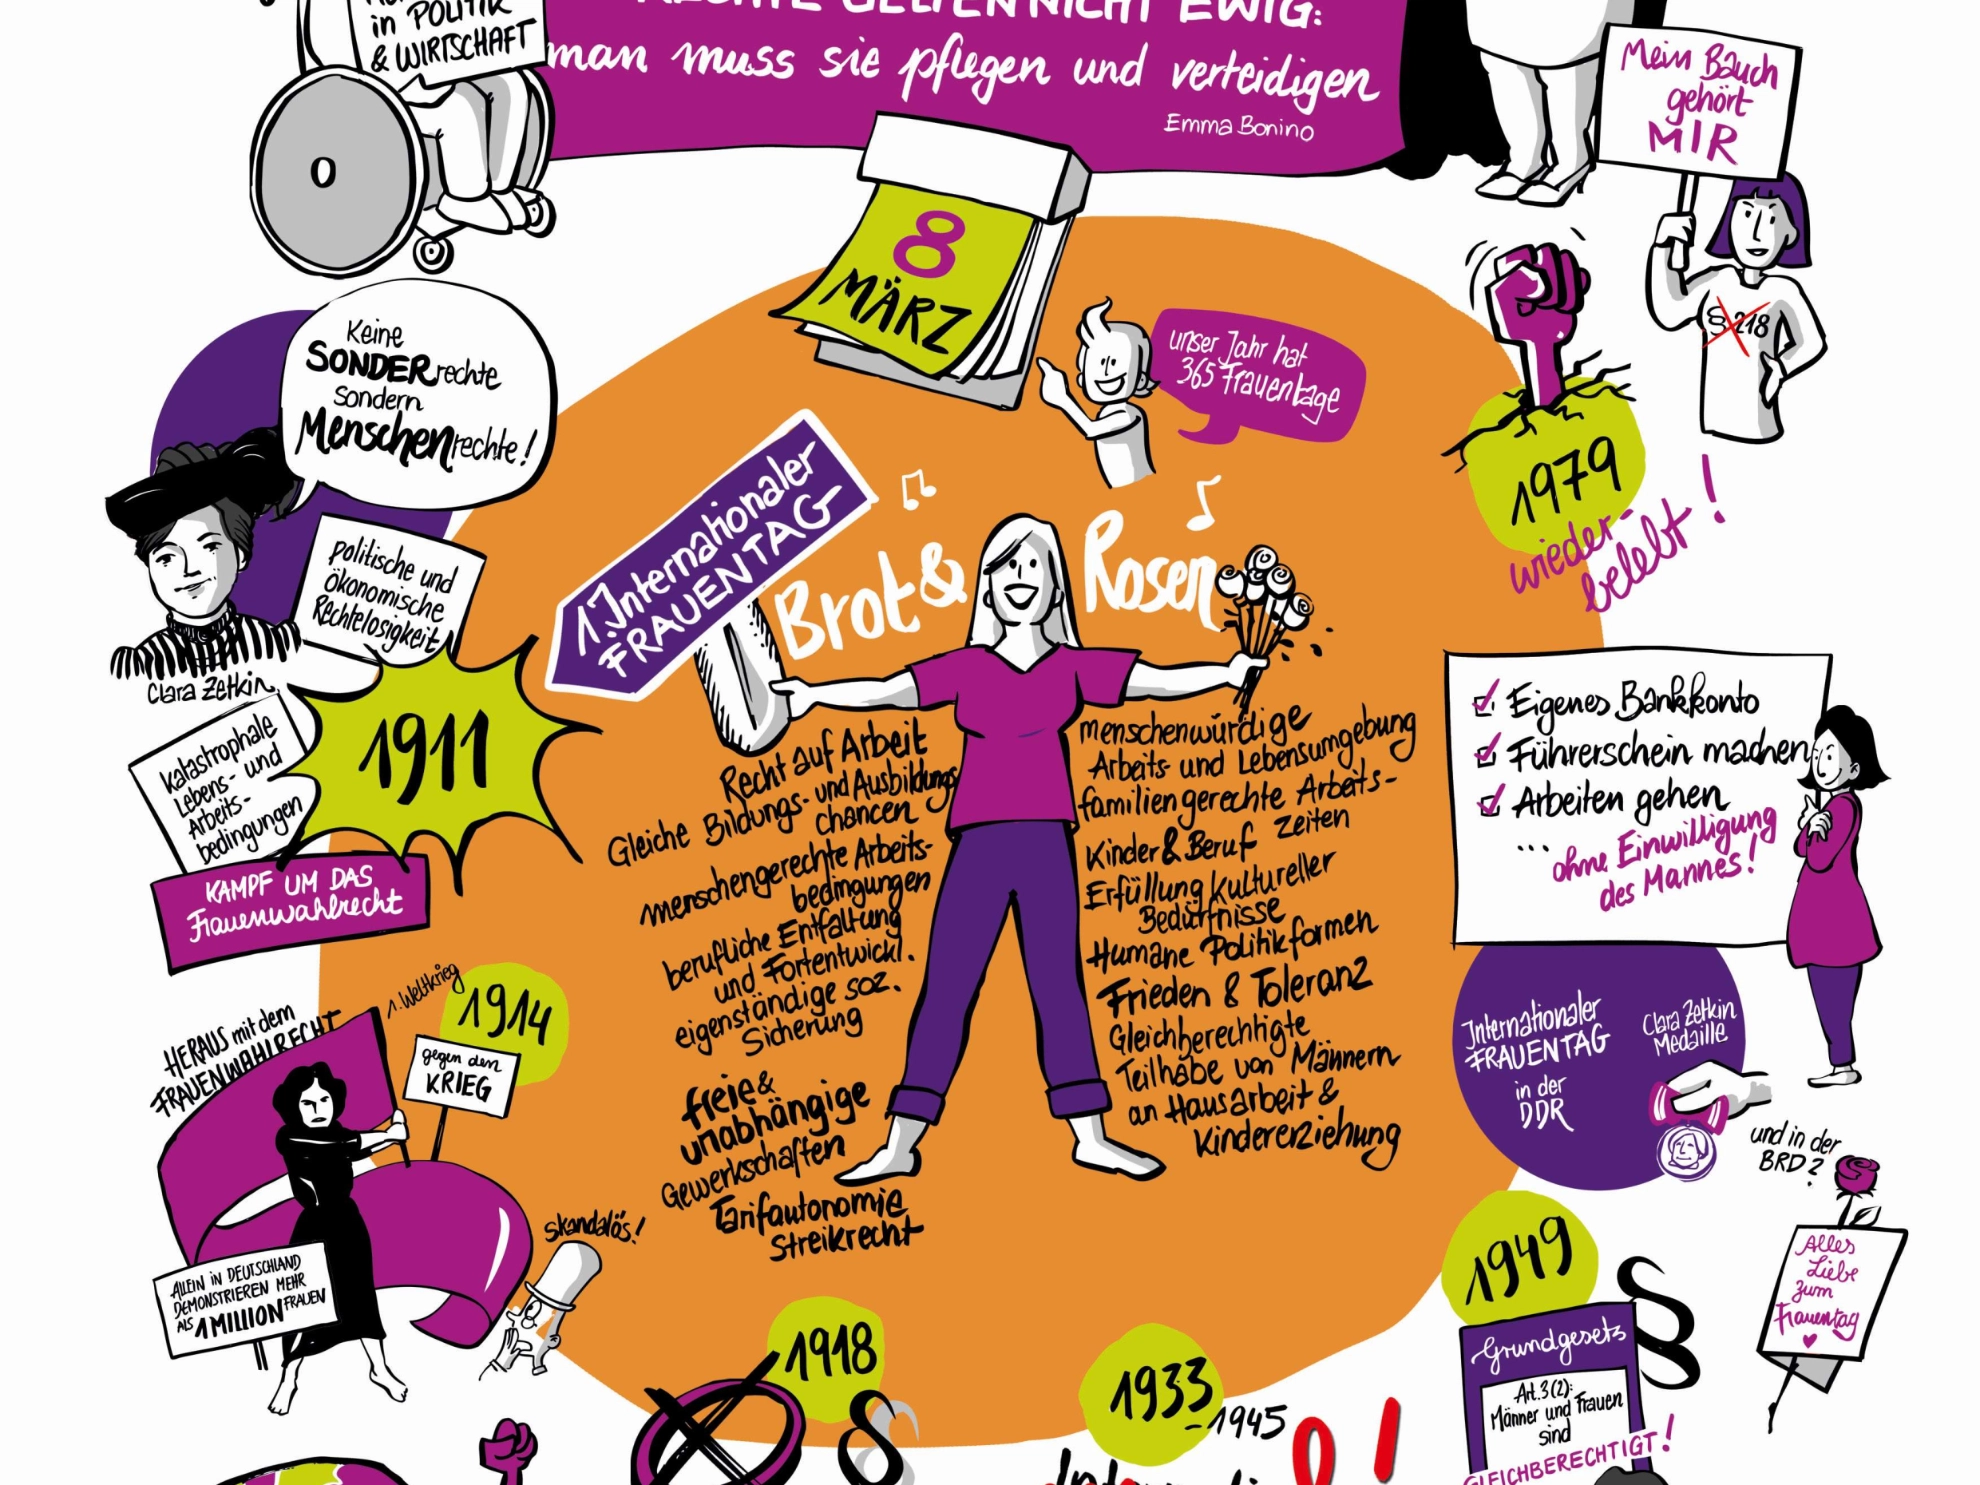 in POLITIK
& WIRTSCHAFT
RECHTE GELTEN NICHT EWIG:
man muss sie pflegen und verteidigen
Emma Bonino
Mein Bauch
gehört
MIR
§ 218
8
MÄRZ
unser Jahr hat
365 Frauentage
Keine
SONDERrechte
Sondern
Menschenrechte!
Clara Zetkin
politische und
ökonomische
Rechtelosigkeit
katastrophale
Lebens- und
Arbeits-
bedingungen
1911
KAMPF UM DAS
Frauenwahlrecht
1. Internationaler
FRAUENTAG
Brot & Rosen
Recht auf Arbeit
Gleiche Bildungs- und Ausbildungs
chancen
menschengerechte Arbeits-
bedingungen
berufliche Entfaltung
und Fortentwickl.
eigenständige soz.
Sicherung
freie &
unabhängige
Gewerkschaften
Tarifautonomie
Streikrecht
menschenwürdige
Arbeits- und Lebensumgebung
familiengerechte Arbeits-
zeiten
Kinder & Beruf
Erfüllung kultureller
Bedürfnisse
Humane Politikformen
Frieden & Toleranz
Gleichberechtigte
Teilhabe von Männern
an Hausarbeit &
Kindererziehung
1979
wieder-
belebt!
Eigenes Bankkonto
Führerschein machen
Arbeiten gehen
... ohne Einwilligung
des Mannes!
Internationaler
FRAUENTAG
in der
DDR
Clara Zetkin
Medaille
und in der
BRD?
Alles
Liebe
zum
Frauentag
1. Weltkrieg
1914
HERAUS mit dem
FRAUENWAHLRECHT
gegen den
KRIEG
ALLEIN IN DEUTSCHLAND
DEMONSTRIEREN MEHR
ALS 1 MILLION FRAUEN
skandalös!
1918
§
1933
-1945
!
1949
§
Grundgesetz
Art. 3 (2):
Männer und Frauen
sind
GLEICHBERECHTIGT!